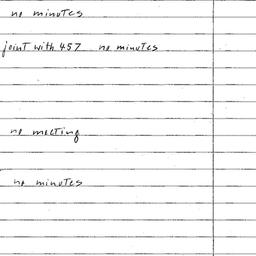 no minutes
joint with 457 no minutes
no meeting
no minutes